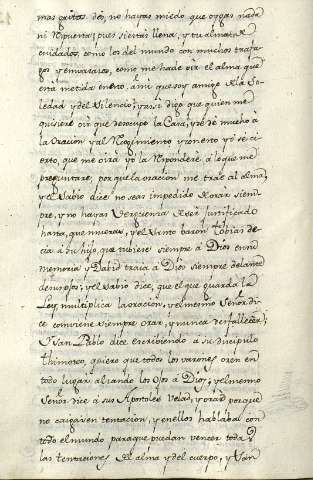 mas gritos dé, no hayas miedo que oygas nada
ni Rspuesta; pues si estas llena, y tu alma de
cuidados, como los del mundo con muchos trafa
gos y embarazos, como me ha de oir el alma que
está metida en esto, a mi que soy amigo de la So
ledad y del Silencio; y assi digo que quien me
quisiere oir que desocupe la Casa, y se dé mucho a
la oracion y al Recogimiento y con esto yo sé ci
erto, que me oirá yo la Responderé á lo que me
preguntare, porque la oracion me trae al alma,
y el Sabio dice no seas impedido de orar siem
pre, y no hayas Verguenza de ser Justificado
hasta que mueras, y el Santo baron Tobias de
cia á su hijo, que tubiese siempre á Dios en su
memoria, y David traia a Dios siempre delante
de sus ojos, y el Sabio dice, que el que guarda la
Ley multiplica la oracion, y el mesmo Señor di
ce conviene siempre orar, y nunca desfallecer;
y San Pablo dice escribiendo a su discipulo
thimoteo, quiero que todos los varones oren en
todo lugar alzando los ojos á Dios, y el mesmo
Señor dice a sus Apostoles Velad, y orad porque
no caigais en tentacion, y en ellos hablaba con
todo el mundo para que puedan vencer todas
las tentaciones del alma y del cuerpo, y San